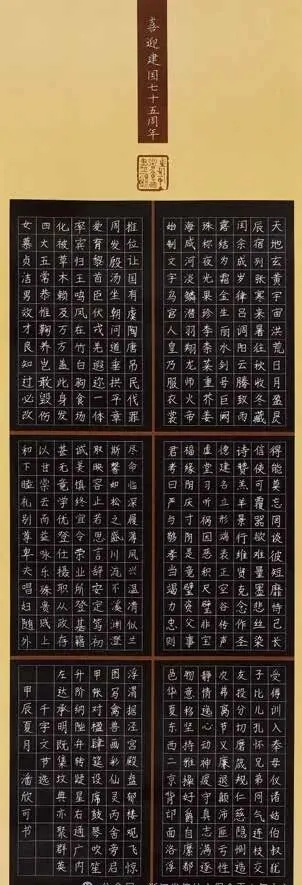 喜迎建国七十五周年
天地玄黄宇宙洪荒日月盈昃
辰宿列张寒来暑往秋收冬藏
闰余成岁律吕调阳云腾致雨
露结为霜金生丽水剑号巨阙
珠称夜光果珍李柰菜重芥姜
海咸河淡鳞潜羽翔龙师火帝
始制文字鸟官人皇乃服衣裳
推位让国有虞陶唐吊民伐罪
周发殷汤坐朝问道垂拱平章
爱育黎首臣伏戎羌遐迩一体
率宾归王鸣凤在竹白驹食场
化被草木赖及万方盖此身发
四大五常恭惟鞠养岂敢毁伤
女慕贞洁男效才良知过必改
得能莫忘罔谈彼短靡恃己长
信使可覆器欲难量墨悲丝染
诗赞羔羊景行维贤克念作圣
德建名立形端表正空谷传声
虚堂习听祸因恶积尺璧非宝
福缘善庆寸阴是竞资父事
君曰严与敬孝当竭力忠则
尽命临深履薄夙兴温凊似兰
斯馨如松之盛川流不息渊澄
取映容止若思言辞安定笃初
诚美慎终宜令荣业所基籍
甚无竟学优登仕摄职从政存
以甘棠去而益咏乐殊贵贱上
和下睦礼别尊卑夫唱妇随外
受傅训入奉母仪诸姑伯叔犹
子比儿孔怀兄弟同气连枝交
友投分切磨箴规仁慈隐恻造
次弗离节义廉退颠沛匪亏性
静情逸心动神疲守真志满逐
物意移坚持雅操好爵自縻都
邑华夏东西二京背邙面洛浮
浮渭据泾宫殿盘郁楼观飞惊
图写禽兽画彩仙灵丙舍旁启
甲帐对楹肆筵设席鼓瑟吹笙
升阶纳陛弁转疑星右通广内
左达承明既集坟典亦聚群英
千字文节选
甲辰夏月 潘欣可书